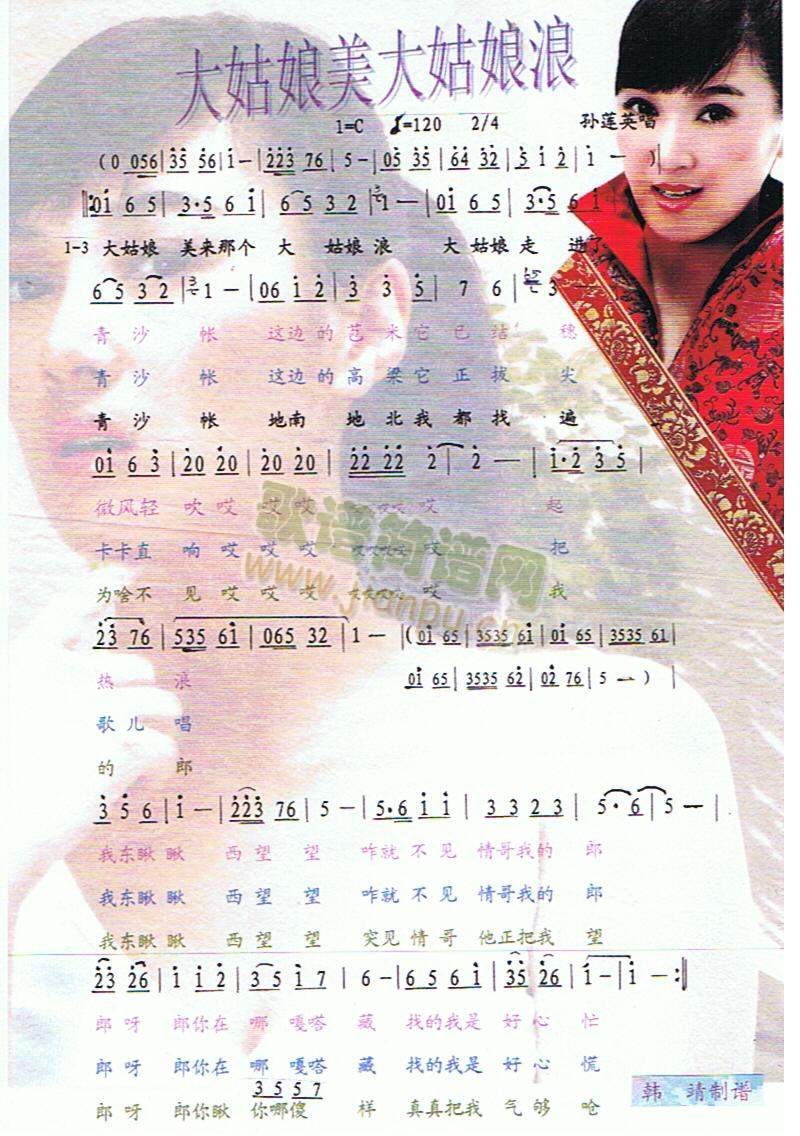 大姑娘美大姑娘浪
1=C ♩=120 2/4 孙莲英唱
(0 056|35 56|1－|223 76|5－|05 35|64 32|5 1 2|1 －)|
‖:01 6 5|3·5 6 1|6 5 3 2|1－|01 6 5|3·5 6 1|
1-3 大姑娘 美来那个 大 姑娘 浪 大 姑娘 走 进了
6 5 3 2|1－|06 1 2|3 3 5|7 6|3－|
青 沙 帐 这边 的 芭 米 它 已 结 穗
青 沙 帐 这边 的 高 粱 它 正 拔 尖
青 沙 帐 地南 地 北 我 都 找 遍
01 6 3|20 20|20 20|22 22 2|2－|1·2 3 5|
微风轻 吹 哎 哎 哎 哎哎哎 哎 起
卡卡直 响 哎 哎 哎 哎哎哎 哎 把
为啥不 见 哎 哎 哎 哎哎哎 哎 我
23 76|535 61|065 32|1－|(01 65|3535 61|01 65|3535 61|
热 浪 01 65|3535 62|02 76|5－)|
歌 儿 唱
的 郎
3 5 6|1－|223 76|5－|5·6 1 1|3 3 2 3|5· 6|5－|
我东瞅 瞅 西 望 望 咋就 不 见 情哥我的 郎
我东瞅 瞅 西 望 望 咋就 不 见 情哥我的 郎
我东瞅 瞅 西 望 望 突见 情 哥 他正把我 望
23 26|1 1 2|3 5 1 7|6－|6 5 6 1|35 26|1－|1－:‖
郎 呀 郎你在 哪 嘎嗒 藏 找的我是 好 心 忙
郎 呀 郎你在 哪 嘎嗒 藏 找的我是 好 心 慌
3 5 5 7
郎 呀 郎你瞅 你哪傻 样 真真把我 气 够 呛
韩 靖制谱
歌谱简谱网
www.jianpu.cn